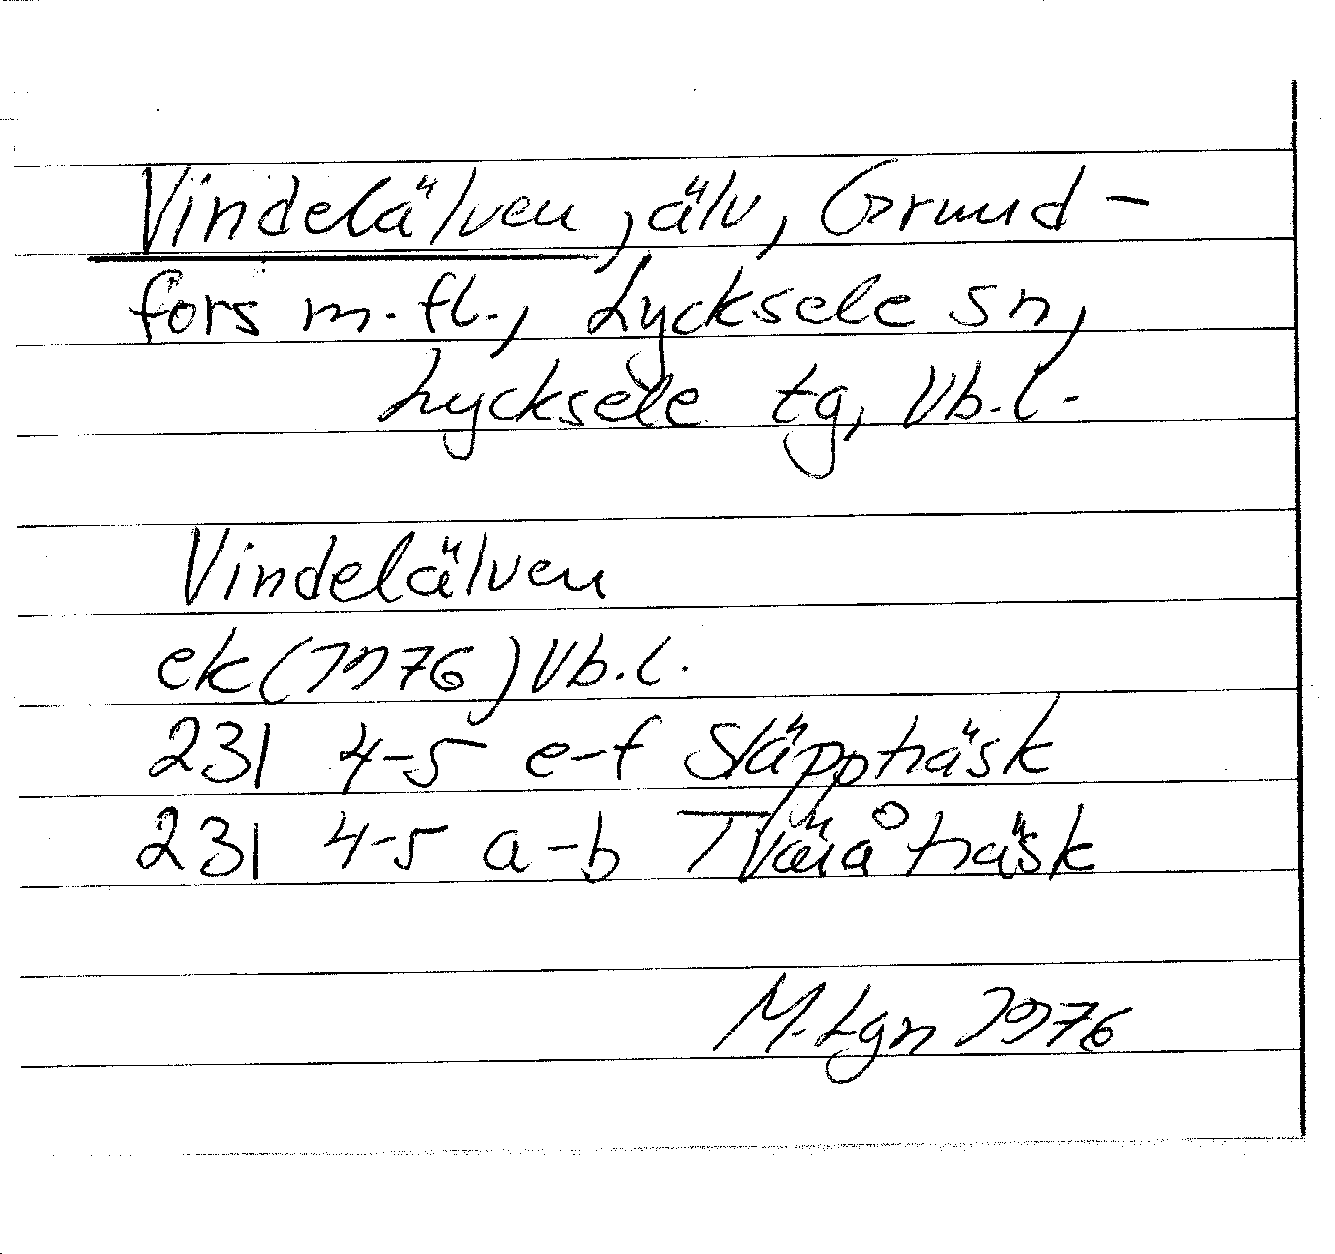 Vindelälven, älv, Grund-
fors m.fl., Lycksele sn,
Lycksele tg, Vb.l.
Vindelälven
ek (1976) Vb.l.
231 4-5 e-f Släppträsk
231 4-5 a-b Tväråträsk
M. Lgn 1976